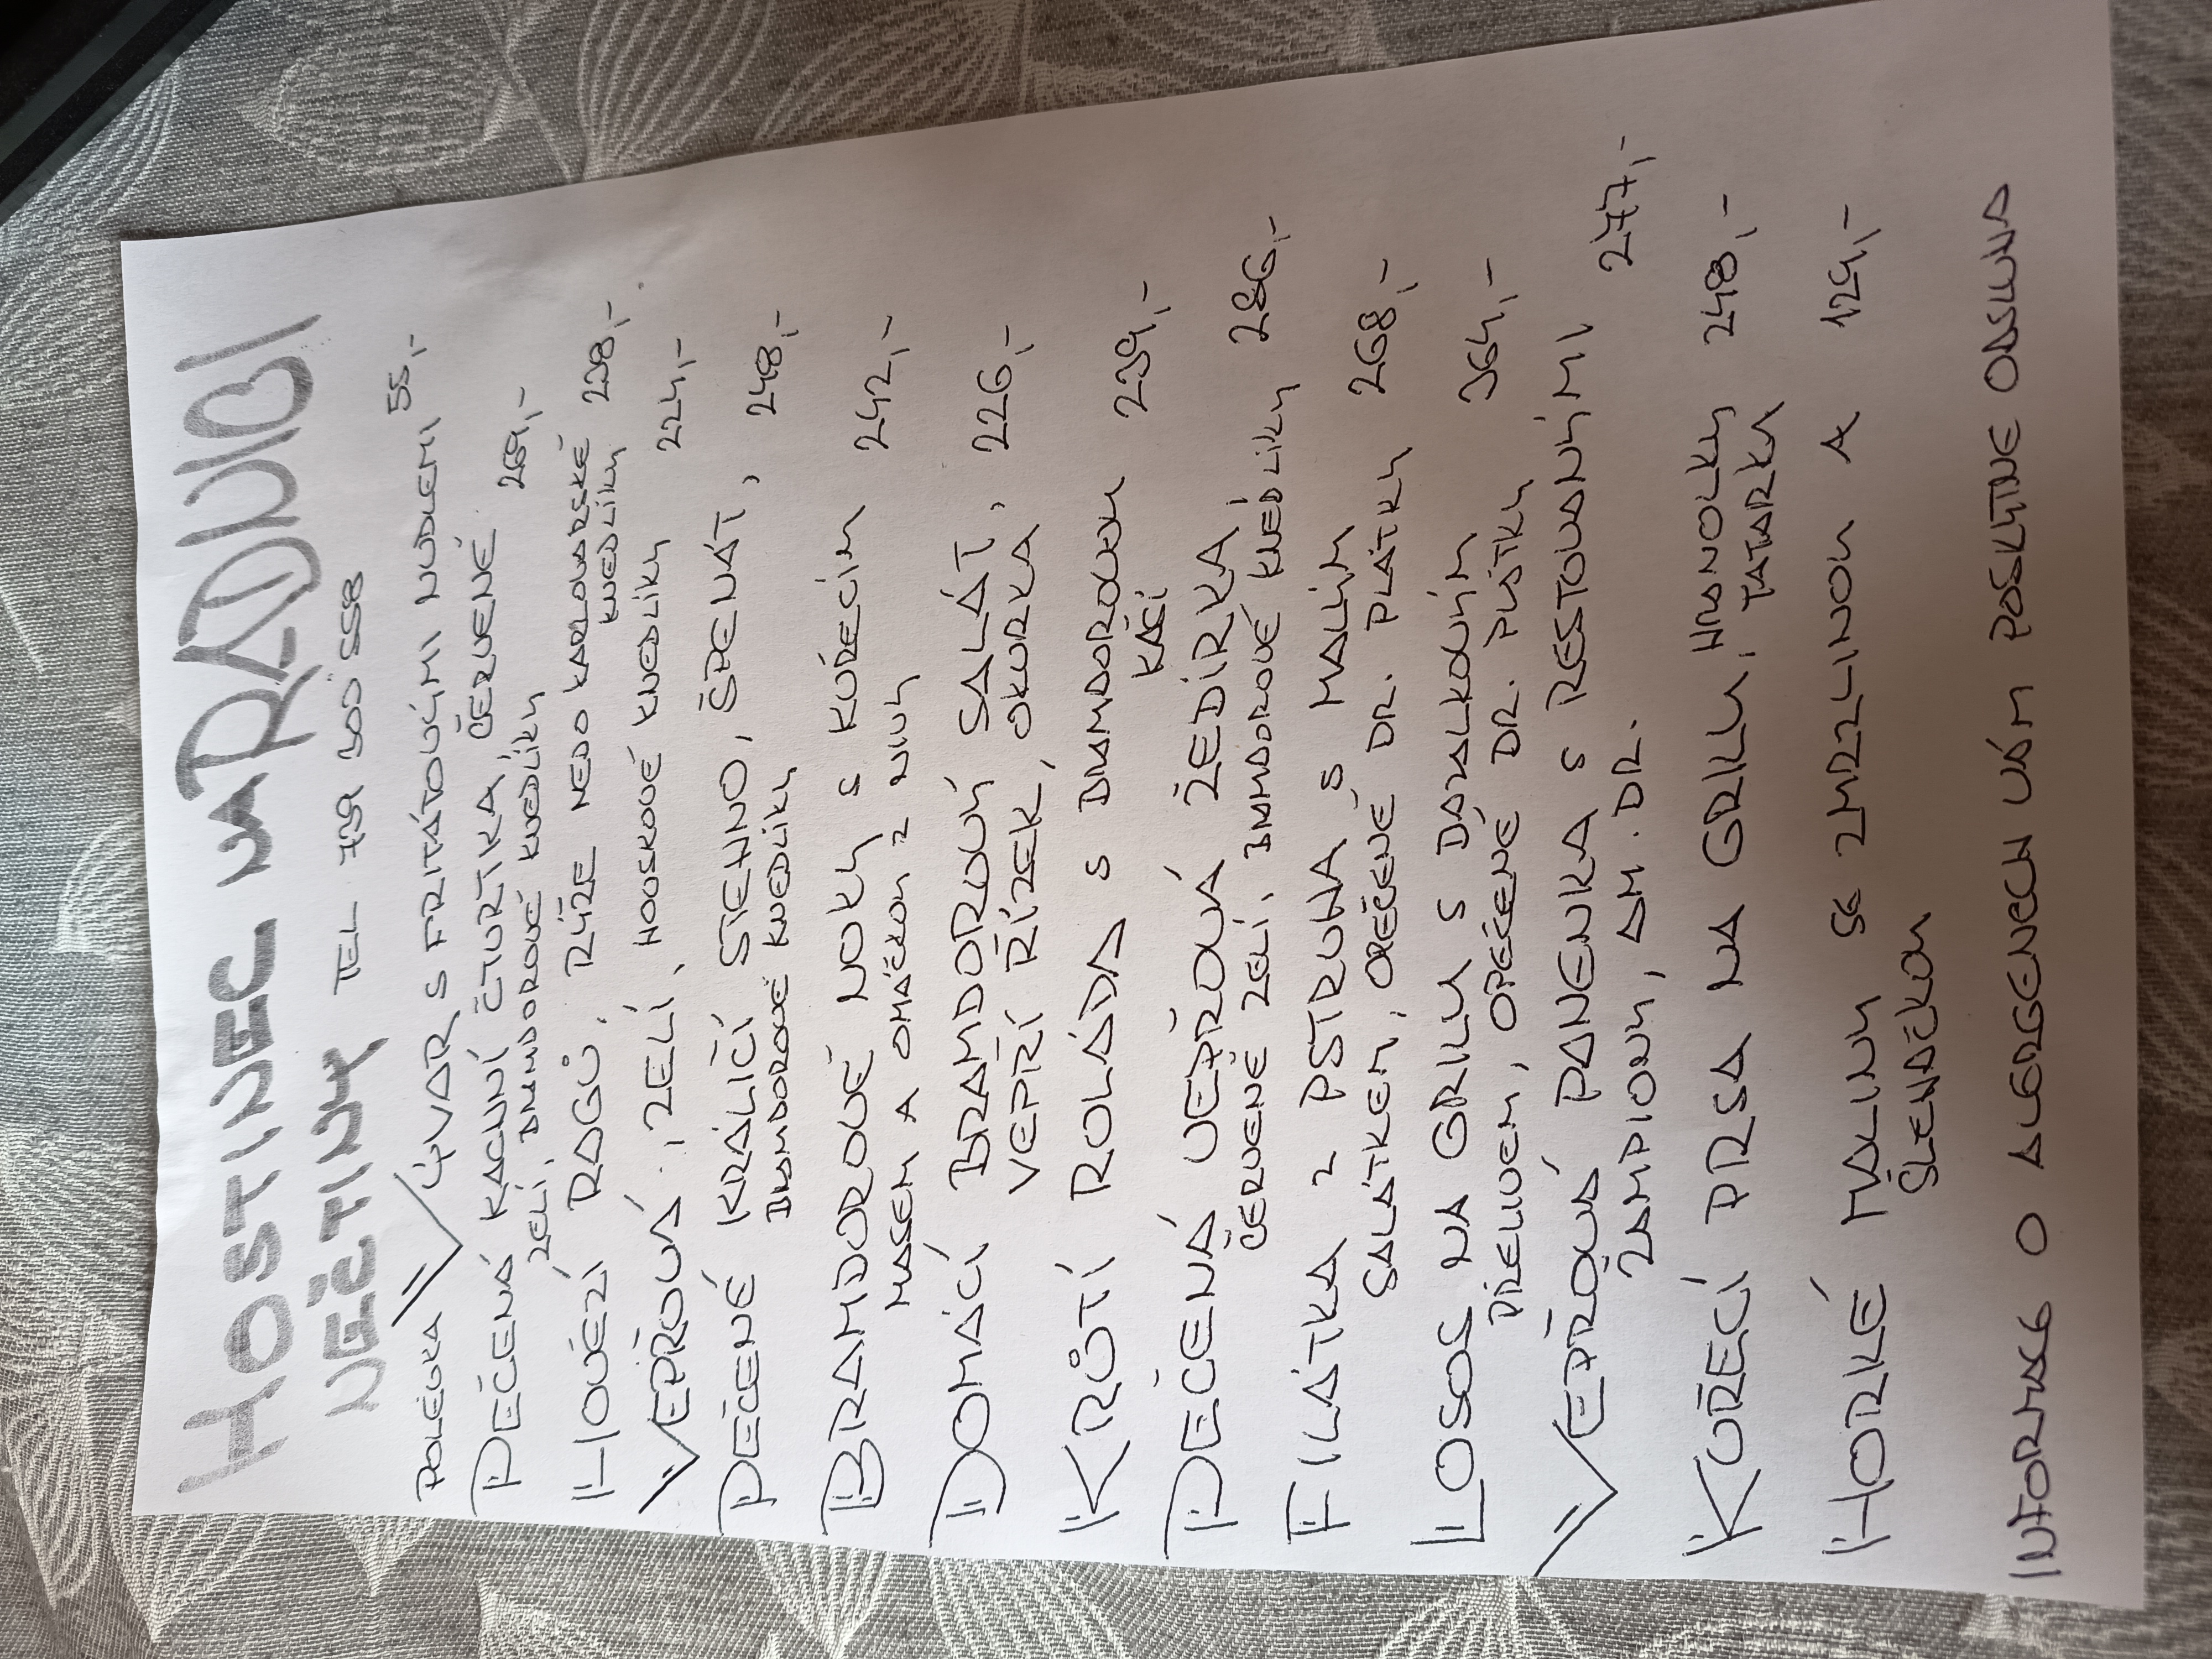 HOSTINEC U RADNICE
NEČTINY TEL 739 500 558
POLÉVKA VÝVAR S FRITÁTOVÝMI NUDLEMI 55,-
PEČENÁ KACHNÍ ČTVRTKA, ČERVENÉ
ZELÍ, BRAMBOROVÉ KNEDLÍKY 269,-
HOVĚZÍ RAGÚ, RÝŽE NEBO KARLOVARSKÉ
KNEDLÍKY 238,-
VEPŘOVÁ, ZELÍ, HOUSKOVÉ KNEDLÍKY 224,-
PEČENÉ KRÁLIČÍ STEHNO, ŠPENÁT,
BRAMBOROVÉ KNEDLÍKY 248,-
BRAMBOROVÉ NOKY S KUŘECÍM
MASEM A OMÁČKOU Z NIVY 242,-
DOMÁCÍ BRAMBOROVÝ SALÁT,
VEPŘÍ ŘÍZEK, OKURKA 226,-
KRŮTÍ ROLÁDA S BRAMBOROVOU
KAŠÍ 239,-
PEČENÁ VEPŘOVÁ ŽEBÍRKA,
ČERVENÉ ZELÍ, BRAMBOROVÉ KNEDLÍKY 286,-
FILÁTKA Z PSTRUHA S MALÝM
SALÁTKEM, OPEČENÉ BR. PLÁTKY 268,-
LOSOS NA GRILU S BAZALKOVÝM
PŘELIVEM, OPEČENÉ BR. PLÁTKY 364,-
VEPŘOVÁ PANENKA S RESTOVANÝMI
ŽAMPIONY, AM. BR. 277,-
KUŘECÍ PRSA NA GRILU, HRANOLKY
TATARKA 248,-
HORKÉ MALINY SE ZMRZLINOU A
ŠLEHAČKOU 124,-
INFORMACE O ALERGENECH VÁM POSKYTNE OBSLUHA